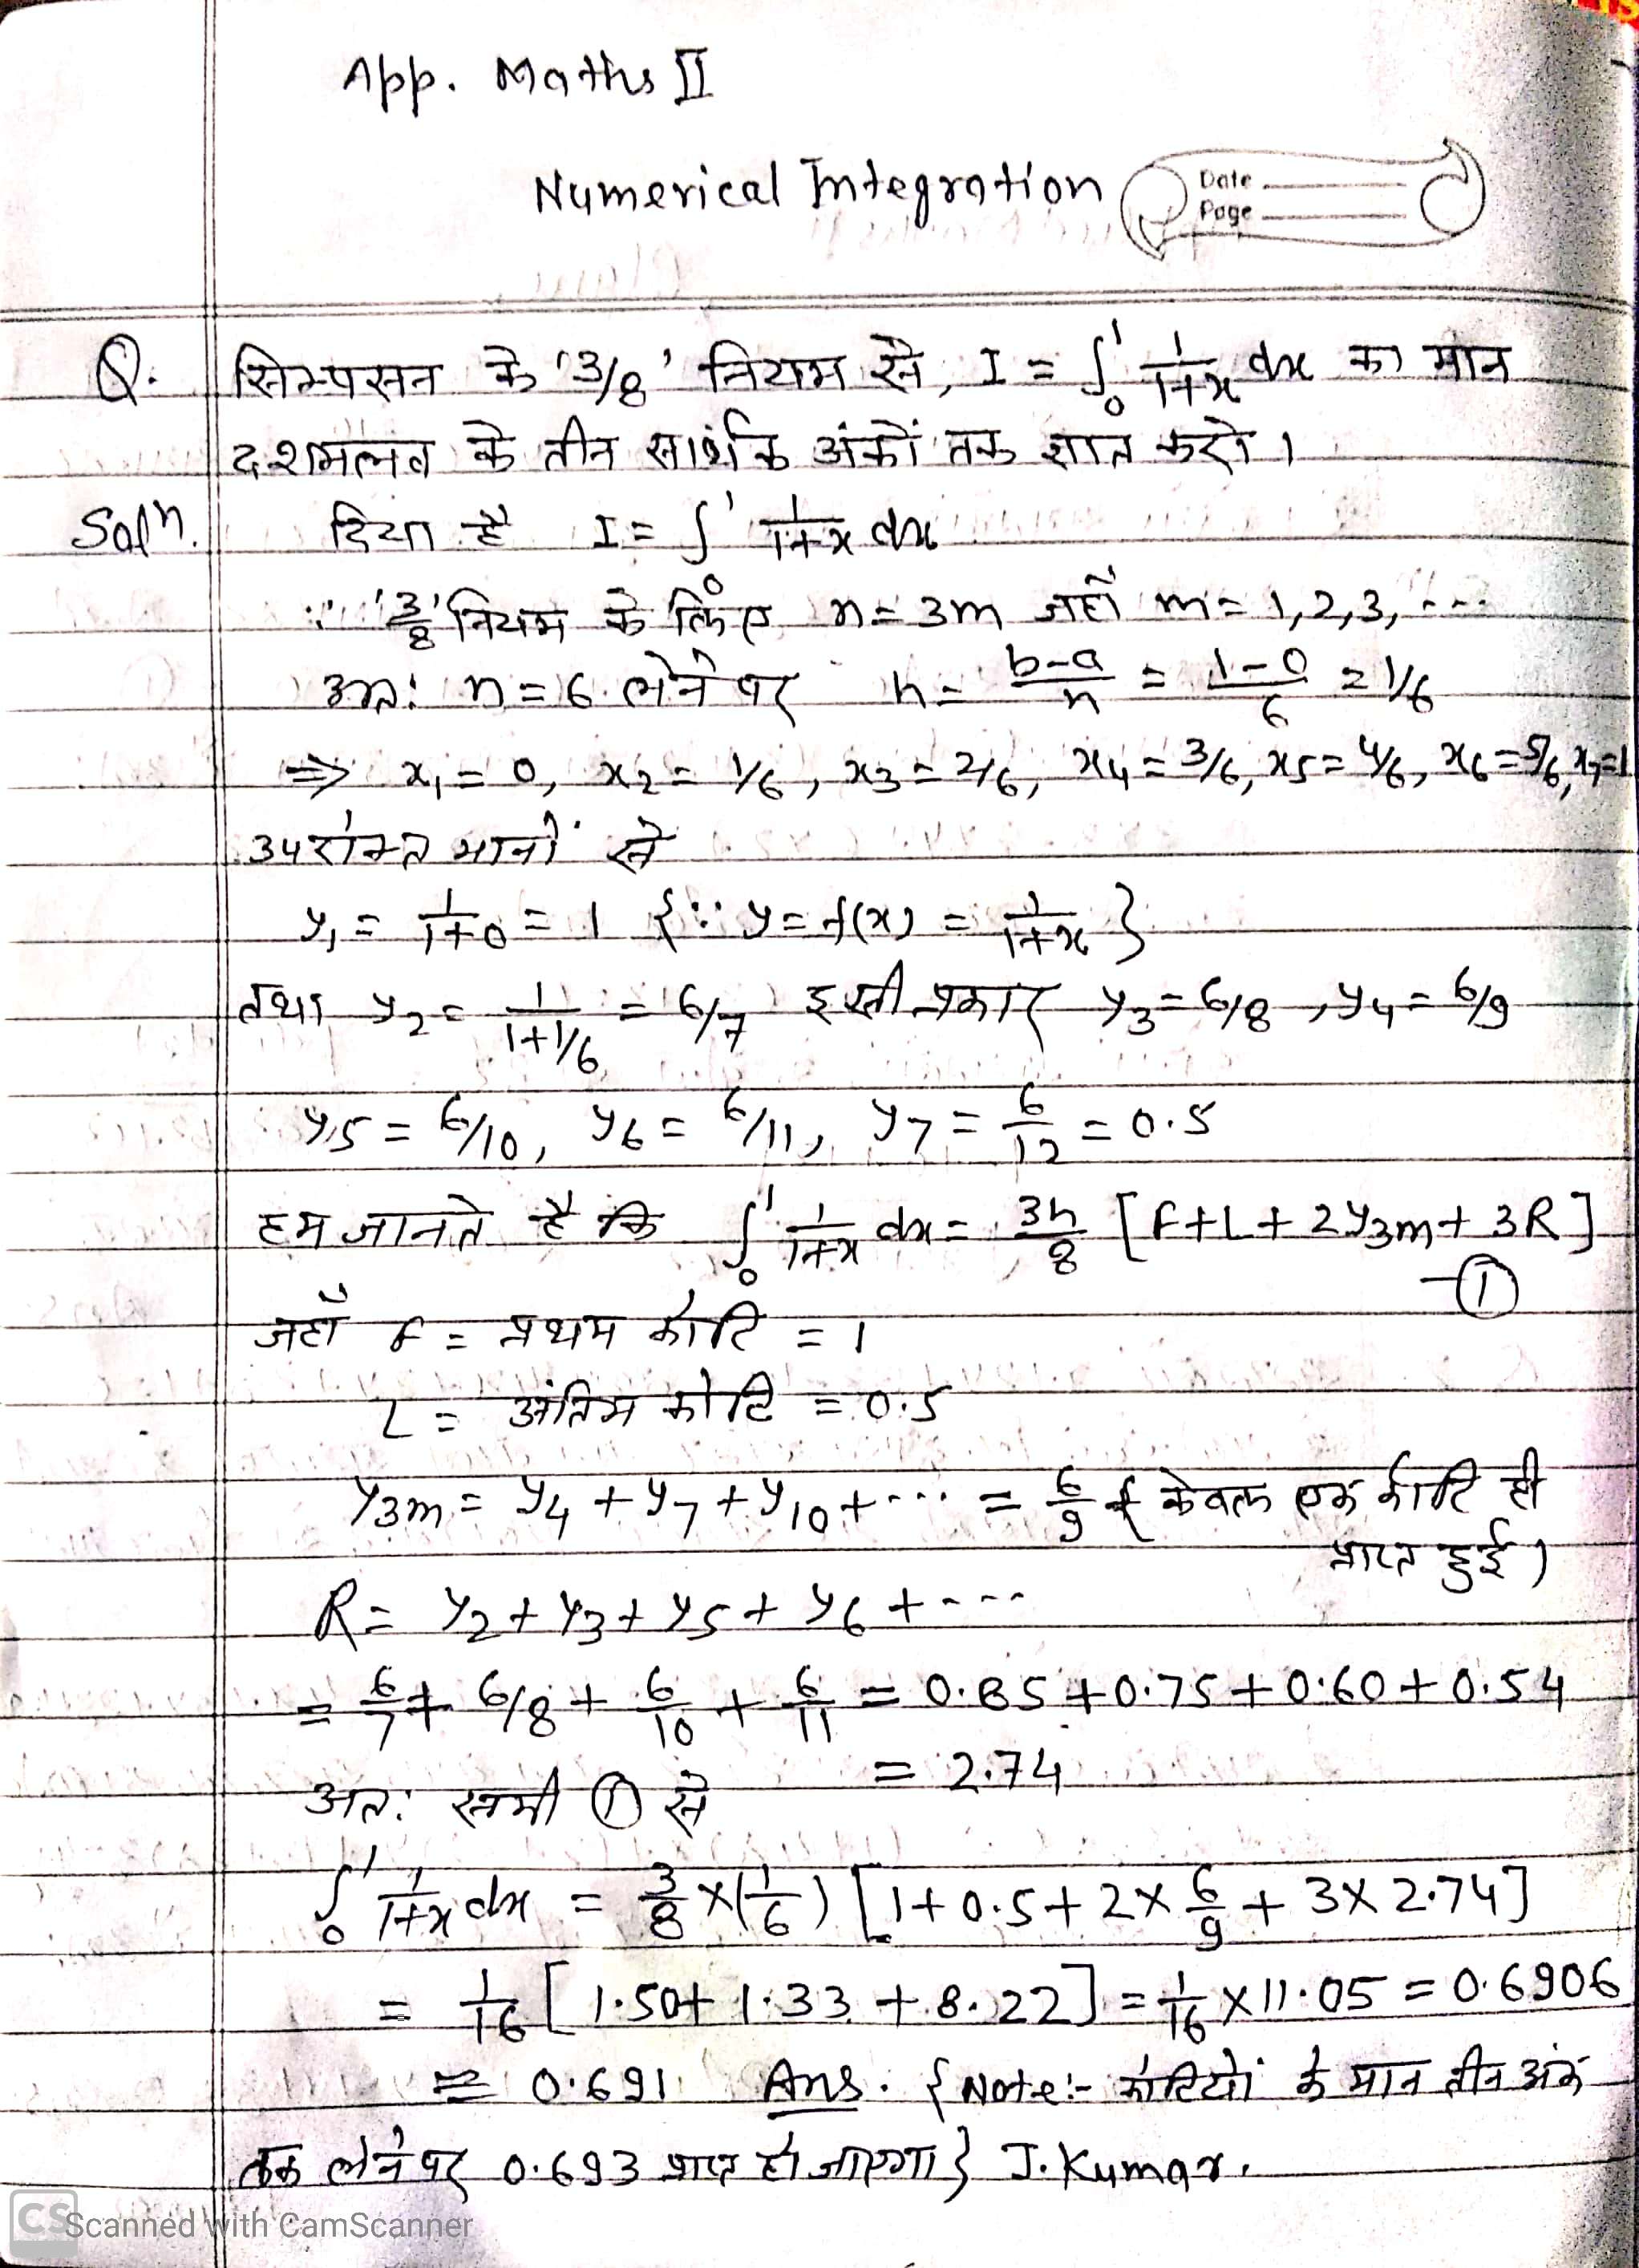 App. Maths II
Numerical Integration
Date
Page
Q. सिम्पसन के '3/8' नियम से, I = ∫₀¹ 1/1+x dx का मान
दशमलव के तीन सार्थक अंकों तक ज्ञात करो।
Solⁿ. दिया है I = ∫₀¹ 1/1+x dx
∵ '3/8' नियम के लिए n = 3m जहाँ m = 1,2,3, ---
अत: n = 6 लेने पर h = b-a/n = 1-0/6 = 1/6
⇒ x₁ = 0, x₂ = 1/6, x₃ = 2/6, x₄ = 3/6, x₅ = 4/6, x₆ = 5/6, x₇=1
उपरोक्त मानों से
y₁ = 1/1+0 = 1 {∵ y = f(x) = 1/1+x}
तथा y₂ = 1/1+1/6 = 6/7 इसी प्रकार y₃ = 6/8, y₄ = 6/9
y₅ = 6/10, y₆ = 6/11, y₇ = 6/12 = 0.5
हम जानते है कि ∫₀¹ 1/1+x dx = 3h/8 [F+L+2y₃m+3R]
—①
जहाँ F = प्रथम कोटि = 1
L = अंतिम कोटि = 0.5
y₃m = y₄ + y₇ + y₁₀ + --- = 6/9 { केवल एक कोटि ही
प्राप्त हुई)
R = y₂ + y₃ + y₅ + y₆ + ---
= 6/7 + 6/8 + 6/10 + 6/11 = 0.85 + 0.75 + 0.60 + 0.54
= 2.74
अत: समी ① से
∫₀¹ 1/1+x dx = 3/8 × (1/6) [1+0.5+2×6/9 + 3×2.74]
= 1/16 [1.50+1.33+8.22] = 1/16 × 11.05 = 0.6906
≈ 0.691 Ans. {Note:- कोटियों के मान तीन अंक
तक लेने पर 0.693 प्राप्त हो जाएगा} J. Kumar.
CS Scanned with CamScanner